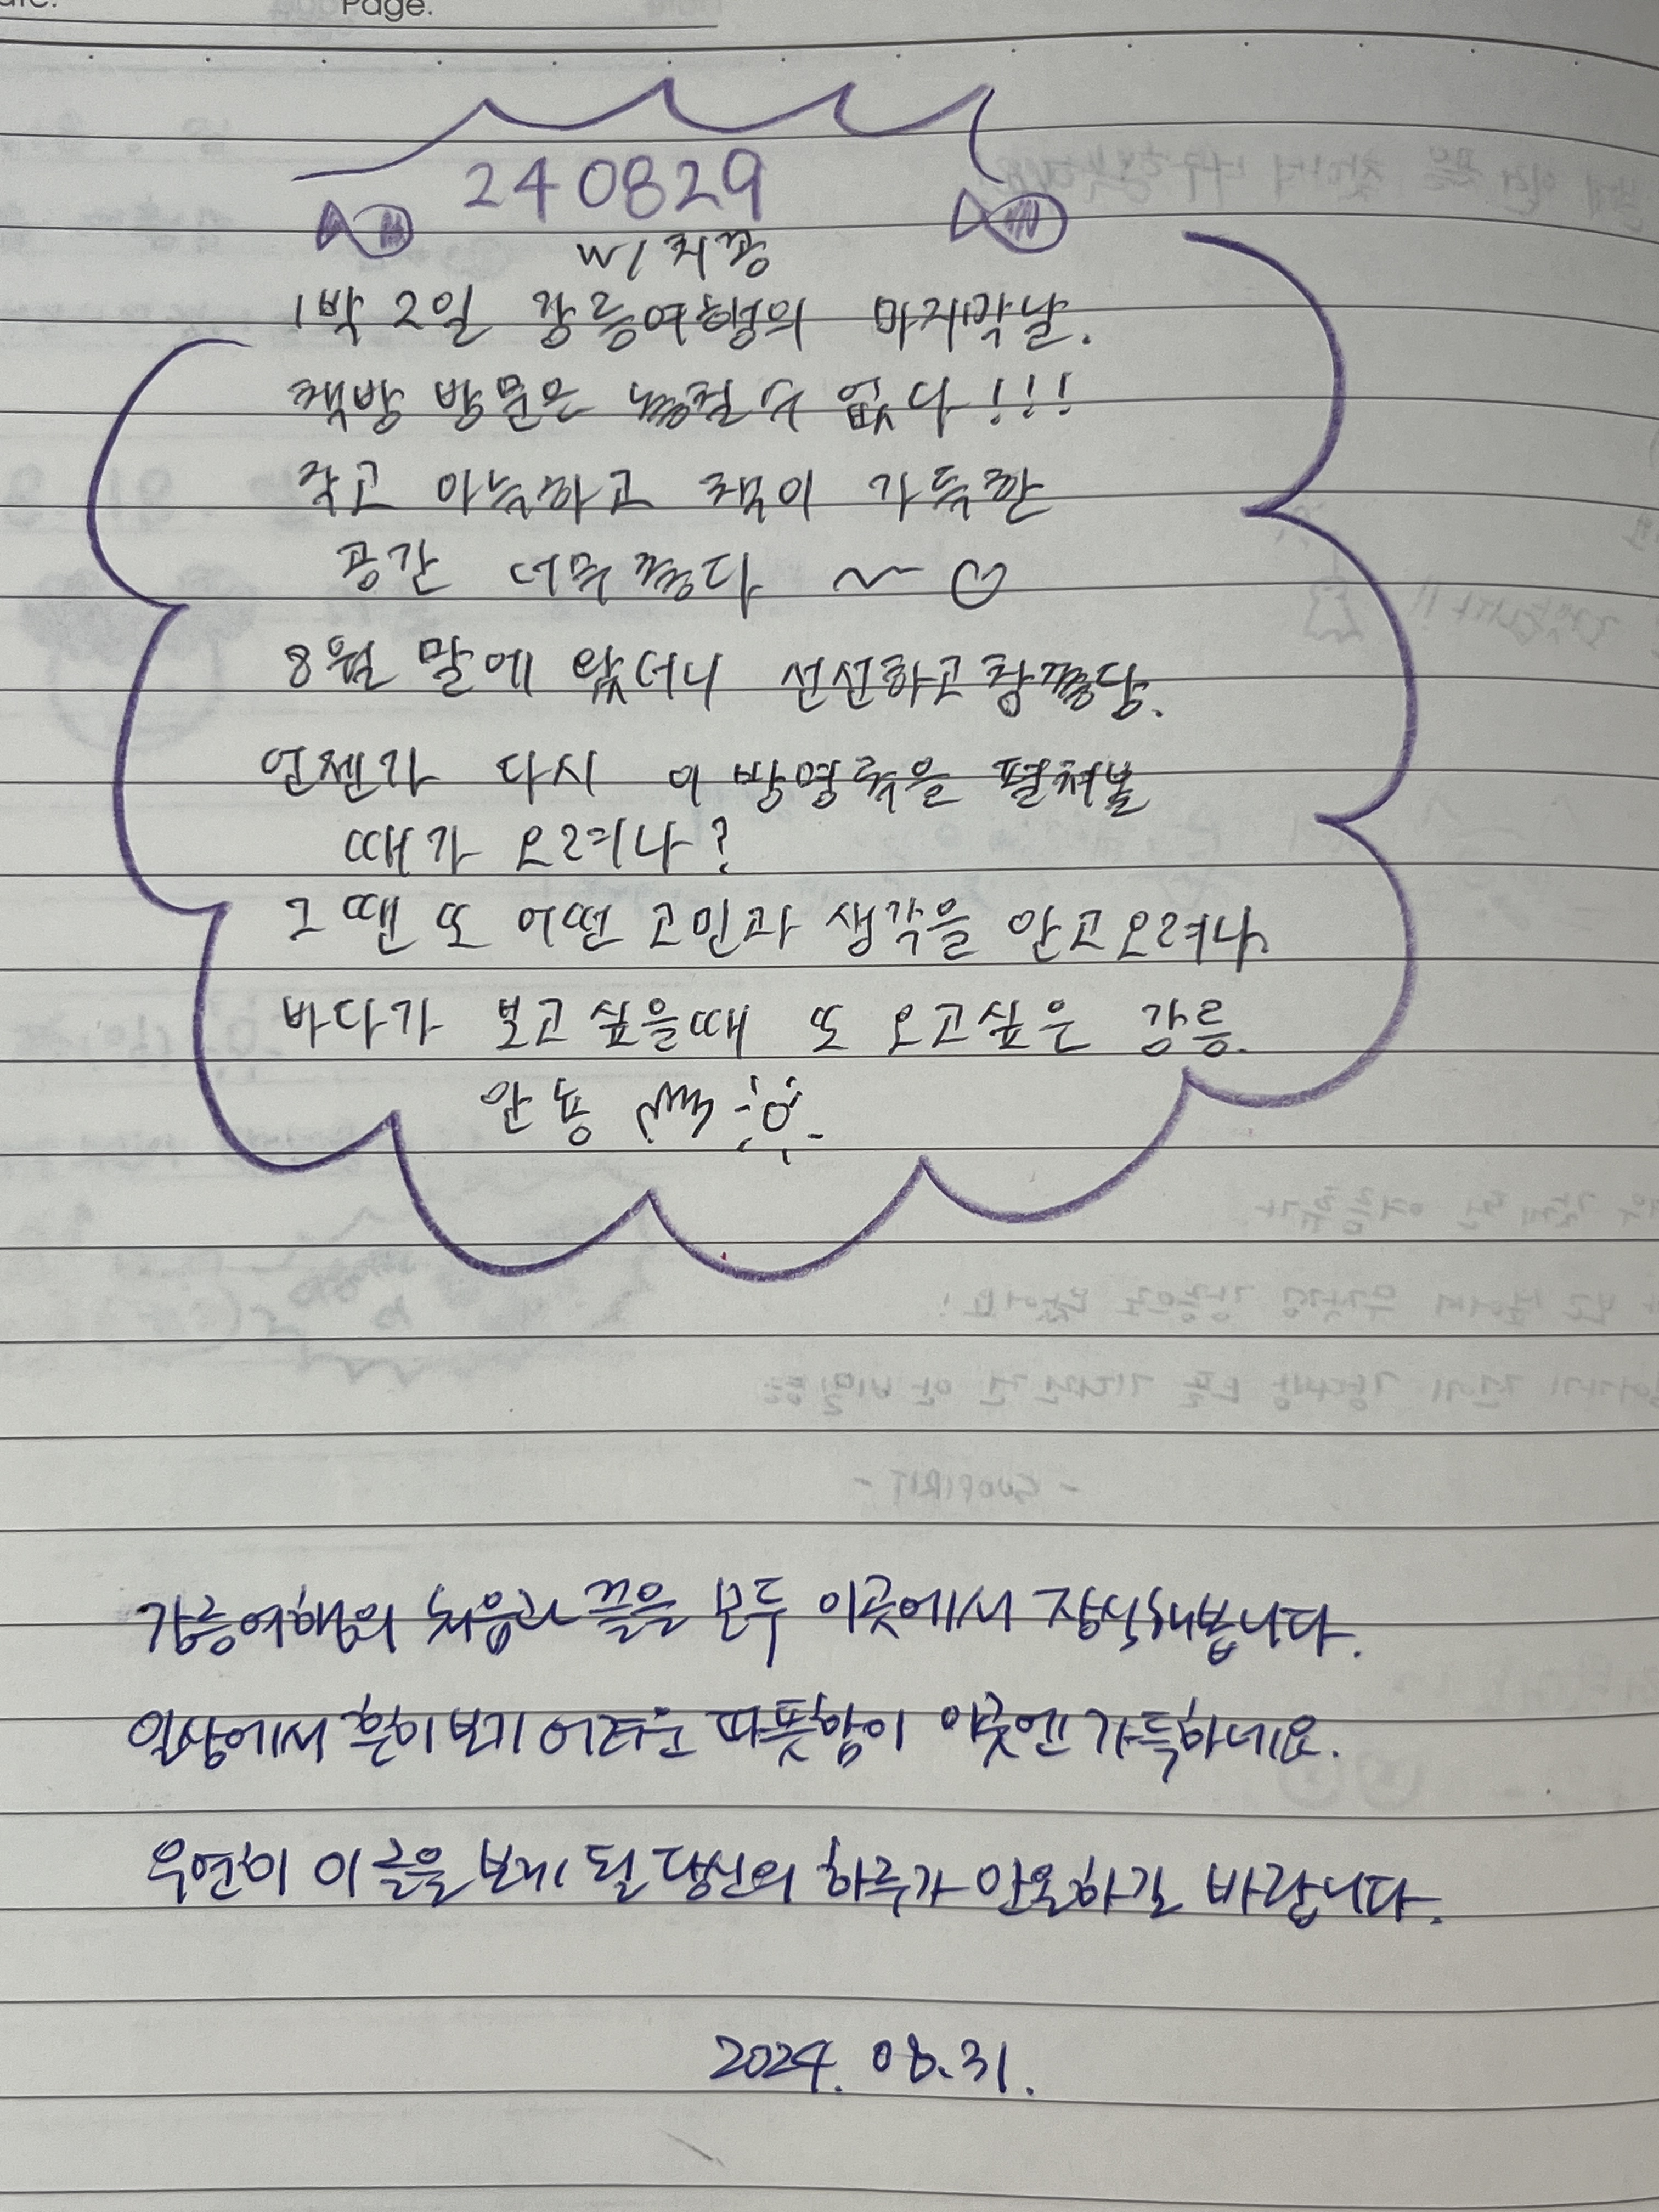 Page.
240829
w/ 치꽁
1박 2일 강릉여행의 마지막날.
책방 방문은 놓칠 수 없다!!!
작고 아늑하고 책이 가득한
공간 너무 좋다 ~
8월 말에 왔더니 선선하고 참 좋당.
언젠가 다시 이 방명록을 펼쳐볼
때가 오려나?
그땐 또 어떤 고민과 생각을 안고오려나.
바다가 보고싶을때 또 오고싶은 강릉.
안농
강릉여행의 처음과 끝을 모두 이곳에서 장식해봅니다.
일상에서 흔히 보기 어려운 따뜻함이 이곳엔 가득하네요.
우연히 이 글을 보게 될 당신의 하루가 안온하길 바랍니다.
2024. 08. 31.